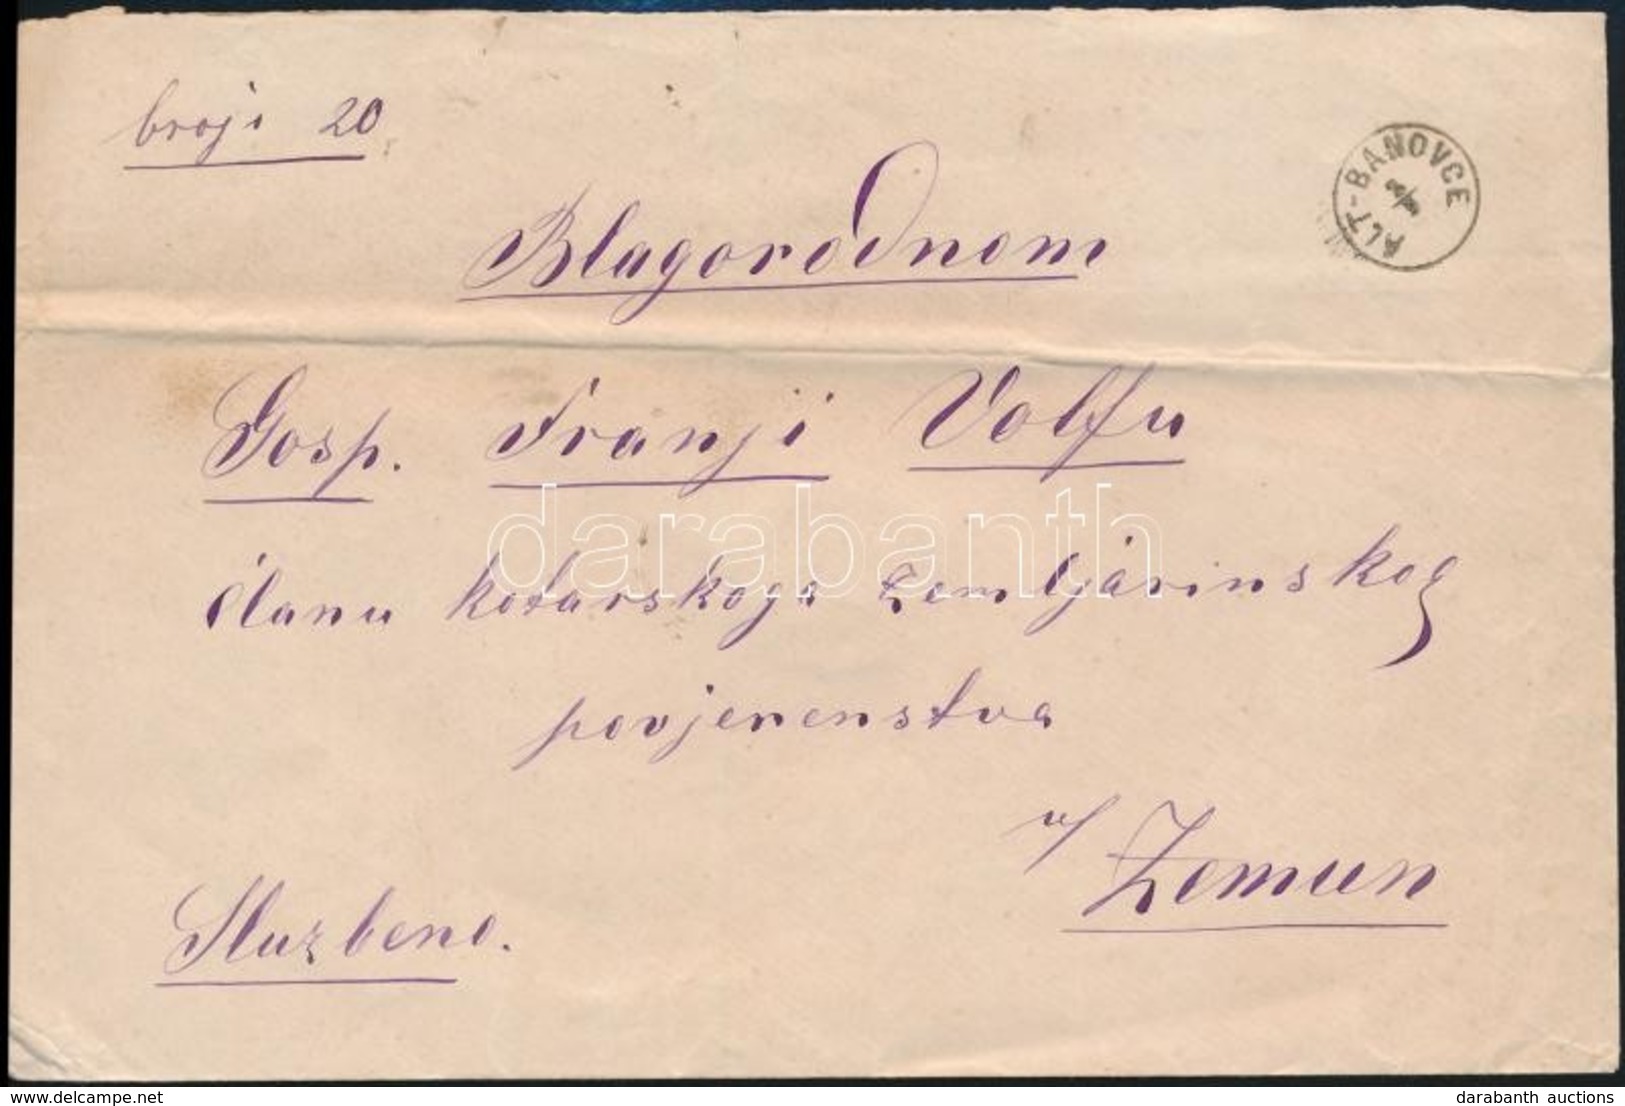 broji 20
ALT-BANOVCE
Blagorodnom
Gosp. Franji Volfu
članu kotarskoga zemljarinskog
povjerenstva
u/ Zemun
Sluzbeno.
darabanth
delcampe.net
darabanth auctions